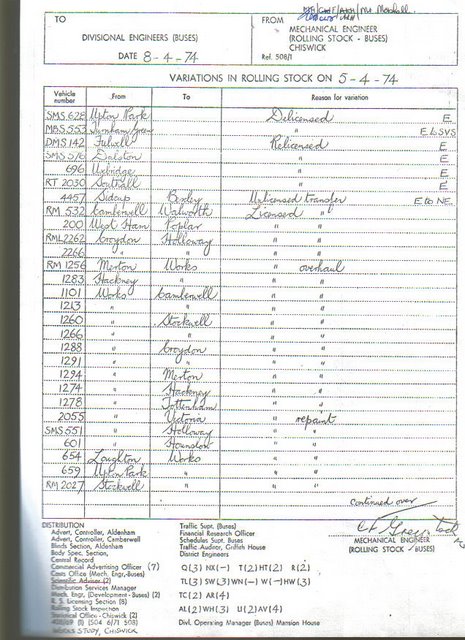 TO
FROM
MECHANICAL ENGINEER
(ROLLING STOCK - BUSES)
CHISWICK
DIVISIONAL ENGINEERS (BUSES)
DATE 8-4-74
Ref. 508/1
VARIATIONS IN ROLLING STOCK ON 5-4-74
Vehicle number From To Reason for variation
SMS 628 Upton Park Delicensed E
MBS 553 Turnham Green " E to SVS
DMS 142 Fulwell Relicensed E
SMS 576 Dalston " E
696 Uxbridge " E
RT 2030 Southall " E
4457 Sidcup Bexley Unlicensed transfer E to NE.
RM 532 Camberwell Walworth Licensed "
200 West Ham Poplar " "
RML 2262 Croydon Holloway " "
2266 " " " "
RM 1256 Merton Works " overhaul
1283 Hackney " " "
1101 Works Camberwell " "
1213 " " " "
1260 " Stockwell " "
1266 " " " "
1288 " Croydon " "
1291 " " " "
1294 " Merton " "
1274 " Hackney " "
1278 " Tottenham " "
2055 " Victoria " repaint
SMS 551 " Holloway " "
601 " Hounslow " "
654 Loughton Works " "
659 Upton Park " " "
RM 2027 Stockwell " " "
continued over
MECHANICAL ENGINEER
(ROLLING STOCK - BUSES)
DISTRIBUTION
Advert. Controller, Aldenham
Advert. Controller, Camberwell
Blinds Section, Aldenham
Body Spec. Section,
Central Record
Commercial Advertising Officer (7)
Costs Office (Mech. Engr.-Buses)
Scientific Adviser (2)
Distribution Services Manager
Mech. Engr. (Development - Buses) (2)
R. S. Licensing Section (8)
Rolling Stock Inspection
Statistical Office - Chiswick (2)
WORKS STUDY, CHISWICK
Traffic Supt. (Buses)
Financial Research Officer
Schedules Supt. Buses
Traffic Auditor, Griffith House
District Engineers
Q(3) NX(-) T(2) HT(2) R(2)
TL(3) SW(3) WN(-) W(-) HW(3)
TC(2) AR(4)
AL(2) WH(3) U(2) AV(4)
Divl. Operating Manager (Buses) Mansion House